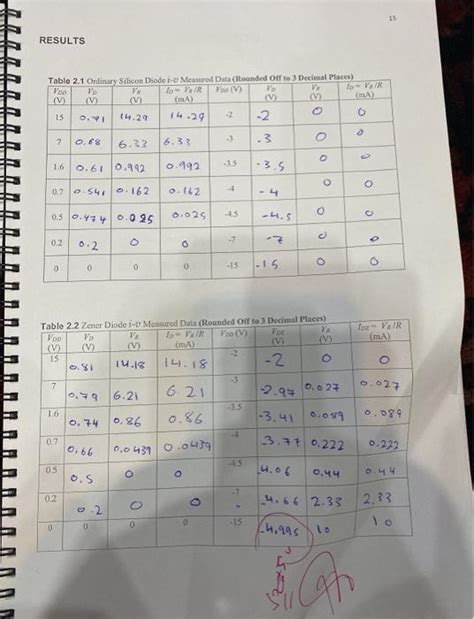 15
RESULTS
Table 2.1 Ordinary Silicon Diode i-υ Measured Data (Rounded Off to 3 Decimal Places)
VDD (V) VD (V) VR (V) ID = VR/R (mA) VDD (V) VD (V) VR (V) ID = VR/R (mA)
15 0.71 14.29 14.29 -2 -2 0 0
7 0.68 6.33 6.33 -3 -3 0 0
1.6 0.61 0.992 0.992 -3.5 -3.5 0 0
0.7 0.541 0.162 0.162 -4 -4 0 0
0.5 0.474 0.025 0.025 -4.5 -4.5 0 0
0.2 0.2 0 0 -7 -7 0 0
0 0 0 0 -15 -15 0 0
Table 2.2 Zener Diode i-υ Measured Data (Rounded Off to 3 Decimal Places)
VDD (V) VD (V) VR (V) ID = VR/R (mA) VDD (V) VDZ (V) VR (V) IDZ = VR/R (mA)
15 0.81 14.18 14.18 -2 -2 0 0
7 0.79 6.21 6.21 -3 -2.97 0.027 0.027
1.6 0.74 0.86 0.86 -3.5 -3.41 0.089 0.089
0.7 0.66 0.0439 0.0439 -4 -3.77 0.222 0.222
0.5 0.5 0 0 -4.5 -4.06 0.44 0.44
0.2 0.2 0 0 -7 -4.66 2.33 2.33
0 0 0 0 -15 -4.995 10 10